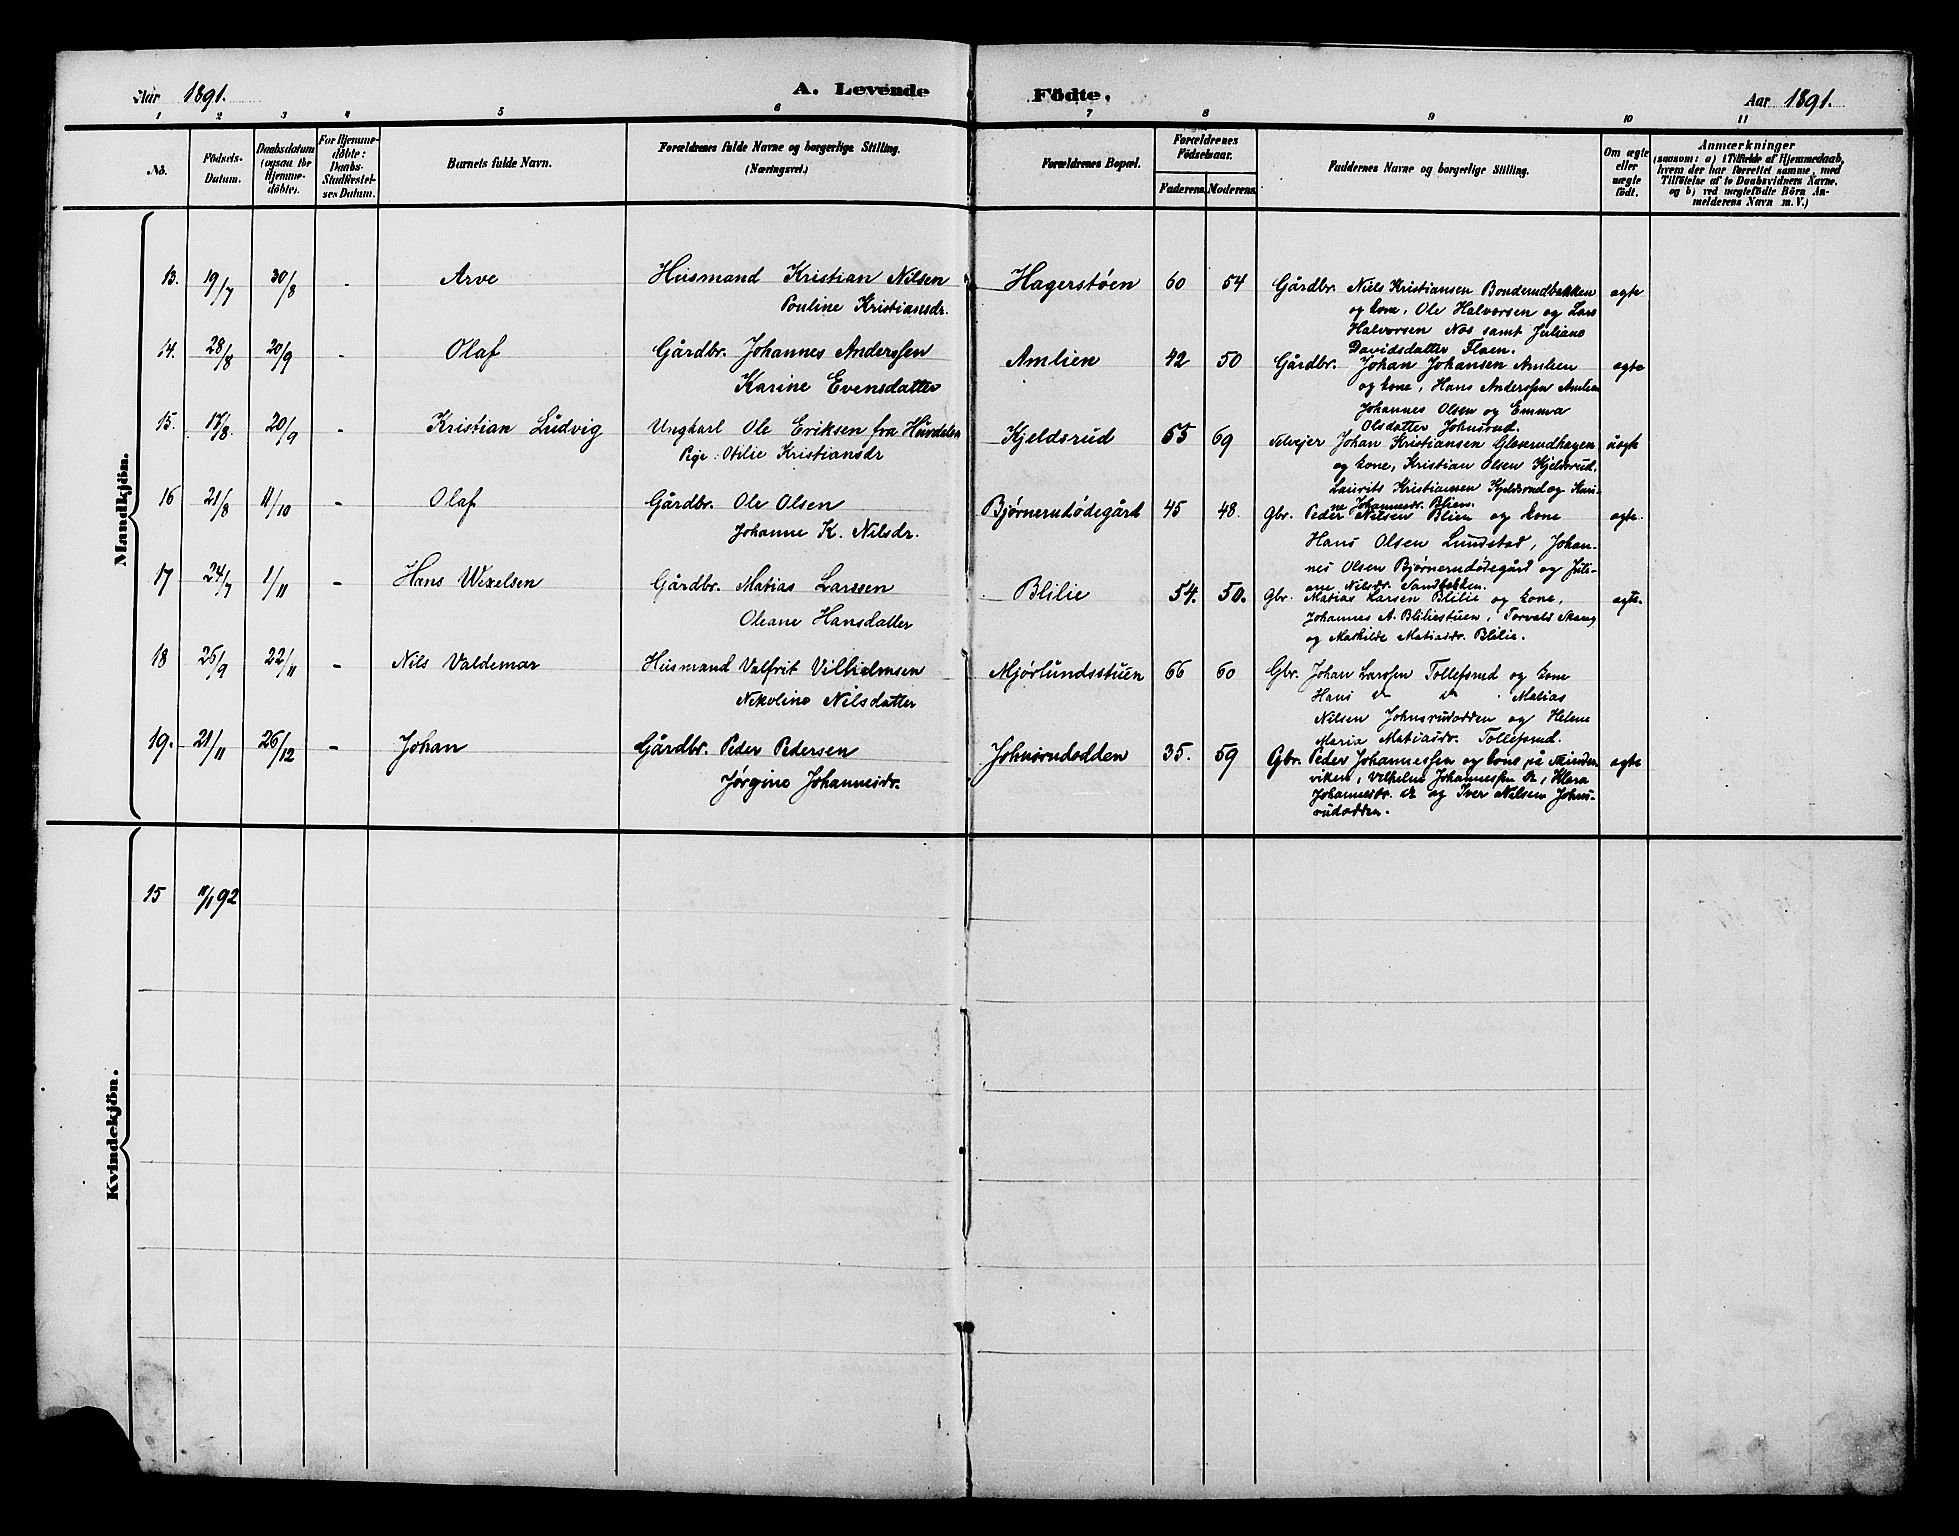 Aar 1891. A. Levende Födte. Aar 1891.
1 2 3 4 5 6 7 8 9 10 11
No. Födsels-Datum. Daabsdatum (ogsaa for Hjemmedöbte). For Hjemmedöbte: Daabs-Stadfæstelses Datum. Barnets fulde Navn. Forældrenes fulde Navne og borgerlige Stilling. (Næringsvei.) Forældrenes Bopæl. Forældrenes Födselsaar. Faderens. Moderens. Faddernes Navne og borgerlige Stilling. Om ægte eller uægte födt. Anmærkninger (saasom: a) i Tilfælde af Hjemmedaab, hvem der har forrettet samme, med Tilföielse af to Daabsvidners Navne, og b) ved uægtefödte Börn Anmelderens Navn m. V.)
Mandkjön.
13. 19/7 30/8 - Arve Husmand Kristian Nilsen Hagerstøen 60 54 Gårdbr. Niels Kristiansen Bonderudbakken ægte
Pouline Kristiansdr. og kone, Ole Halvorsen og Lars
Halvorsen Nos samt Juliane
Davidsdatter Floen.
14. 28/8 20/9 - Olaf Gårdbr. Johannes Anderssen Amlien 42 50 Gårdbr. Johan Johansen Amlien ægte
Karine Evensdatter og kone, Hans Anderssen Amlien
Johannes Olsen og Emma
Olsdatter Johnsrud.
15. 17/8. 20/9 - Kristian Ludvig Ungkarl Ole Eriksen fra Hurdalen Kjeldsrud 65 69 Selvejer Johan Kristiansen Gloserudhagen uægte
Pige: Otilie Kristiansdr og kone, Kristian Olsen Kjeldsrud.
Laurits Kristianssen Kjeldsrud og Kari-
ne Johannesdr. Blien.
16 21/8 11/10 - Olaf Gårdbr. Ole Olsen Bjørnerudødegård 45 48. Gbr. Peder Nilsen Blien og kone ægte.
Johanne K. Nilsdr. Hans Olsen Lundstad, Johan-
nes Olsen Bjørnerudødegård og Juli-
ane Nilsdr. Sandbakken.
17 24/7 1/11 - Hans Wexelsen Gårdbr. Matias Larssen Blilie 54. 50. Gbr. Matias Larsen Blilie og kone, ægte.
Oleane Hansdatter Johannes A. Bliliestuen, Torvald Skaug
og Mathilde Matiasdr. Blilie.
18 26/9 22/11 - Nils Valdemar Husmand Valfrit Vilhelmsen Mjørlundsstuen 66 60 Gbr. Johan Larssen Tollefsrud og kone
Nikoline Nilsdatter Hans do do, Matias
Nilsen Johnsrudodden og Helene
Maria Matiasdr. Tollefsrud.
19. 21/11 26/12 - Johan Gårdbr. Peder Pedersen Johnsrudodden 35. 59 Gbr. Peder Johannessen og kone på Minden- ægte
Jørgine Johannesdr. viken, Vilhelm Johannessen do, Klara
Johannesdr. do og Iver Nilsen Johns-
rudodden.
Kvindekjön.
15 11/1 92